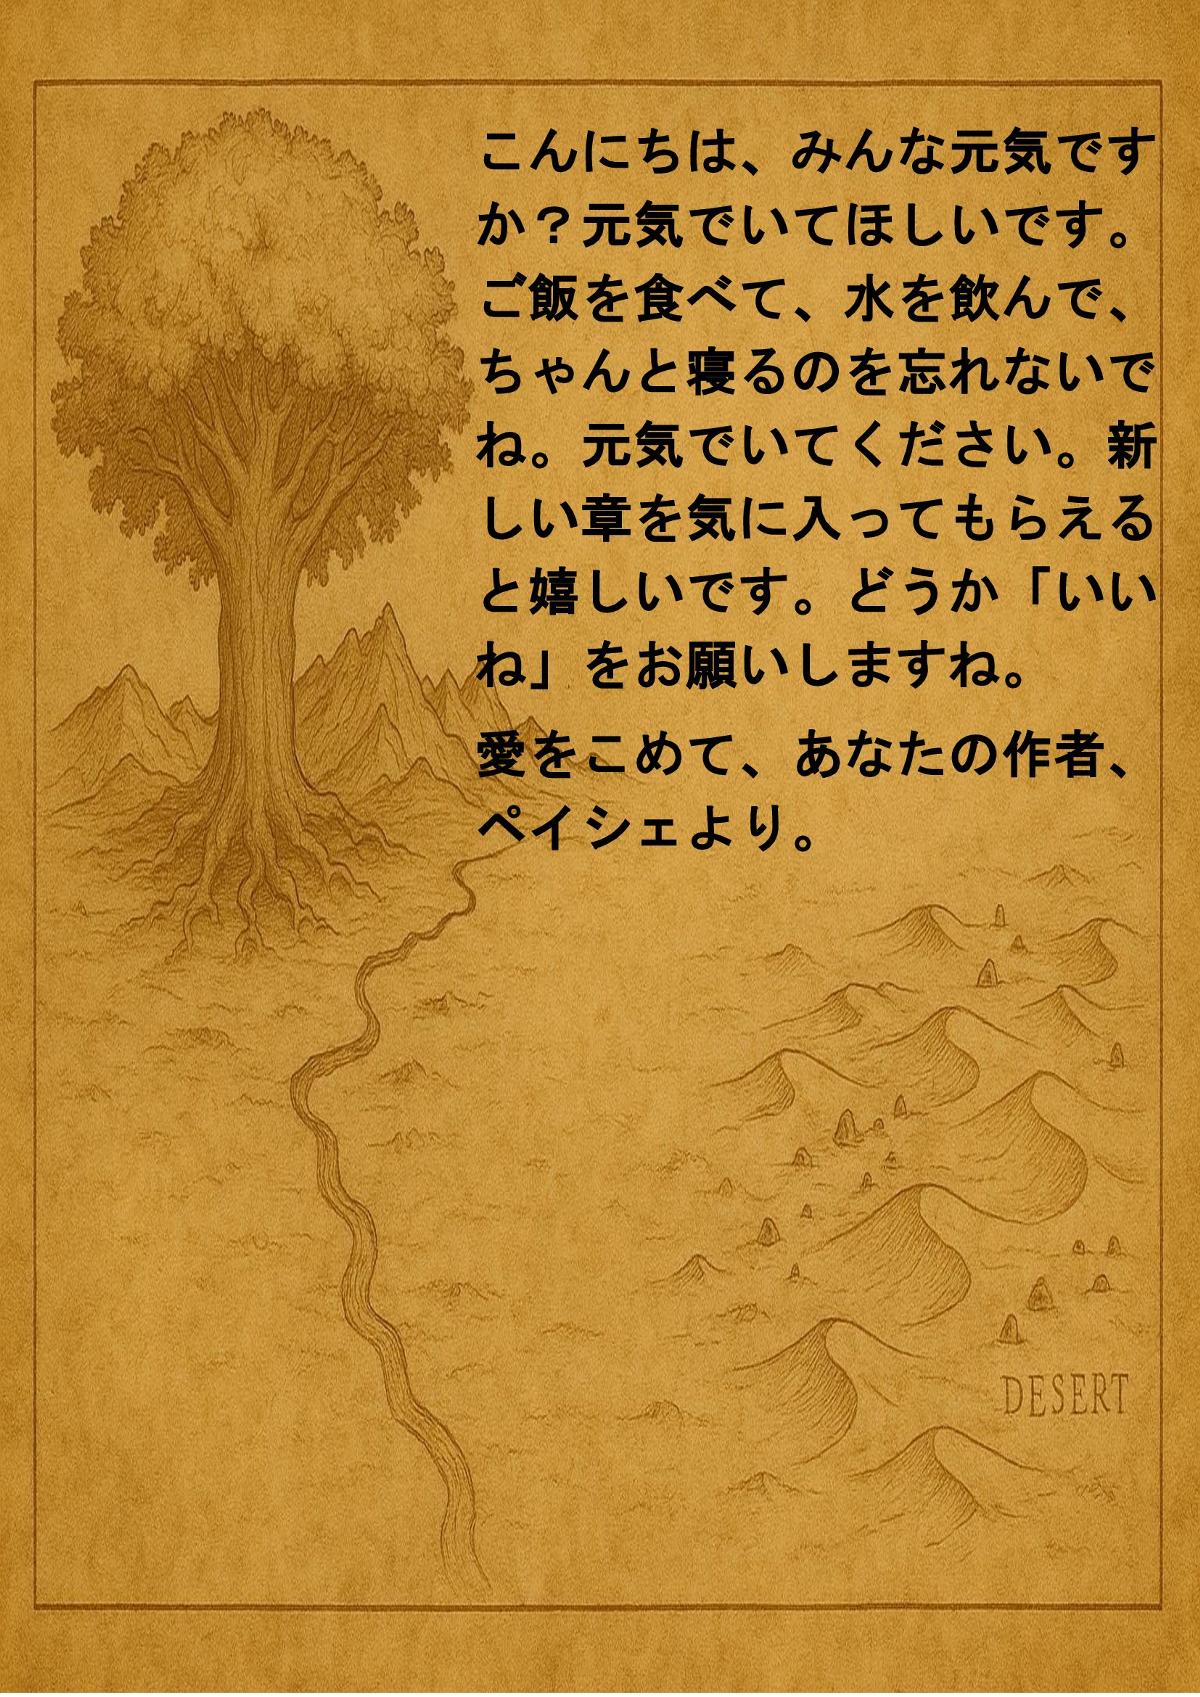 こんにちは、みんな元気です
か？元気でいてほしいです。
ご飯を食べて、水を飲んで、
ちゃんと寝るのを忘れないで
ね。元気でいてください。新
しい章を気に入ってもらえる
と嬉しいです。どうか「いい
ね」をお願いしますね。
愛をこめて、あなたの作者、
ペイシェより。
DESERT